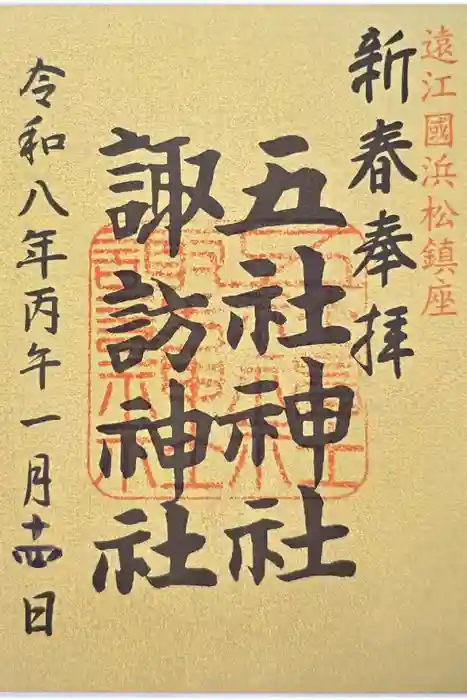 遠江國浜松鎮座
新春奉拝
五社神社
諏訪神社
令和八年丙午一月十四日